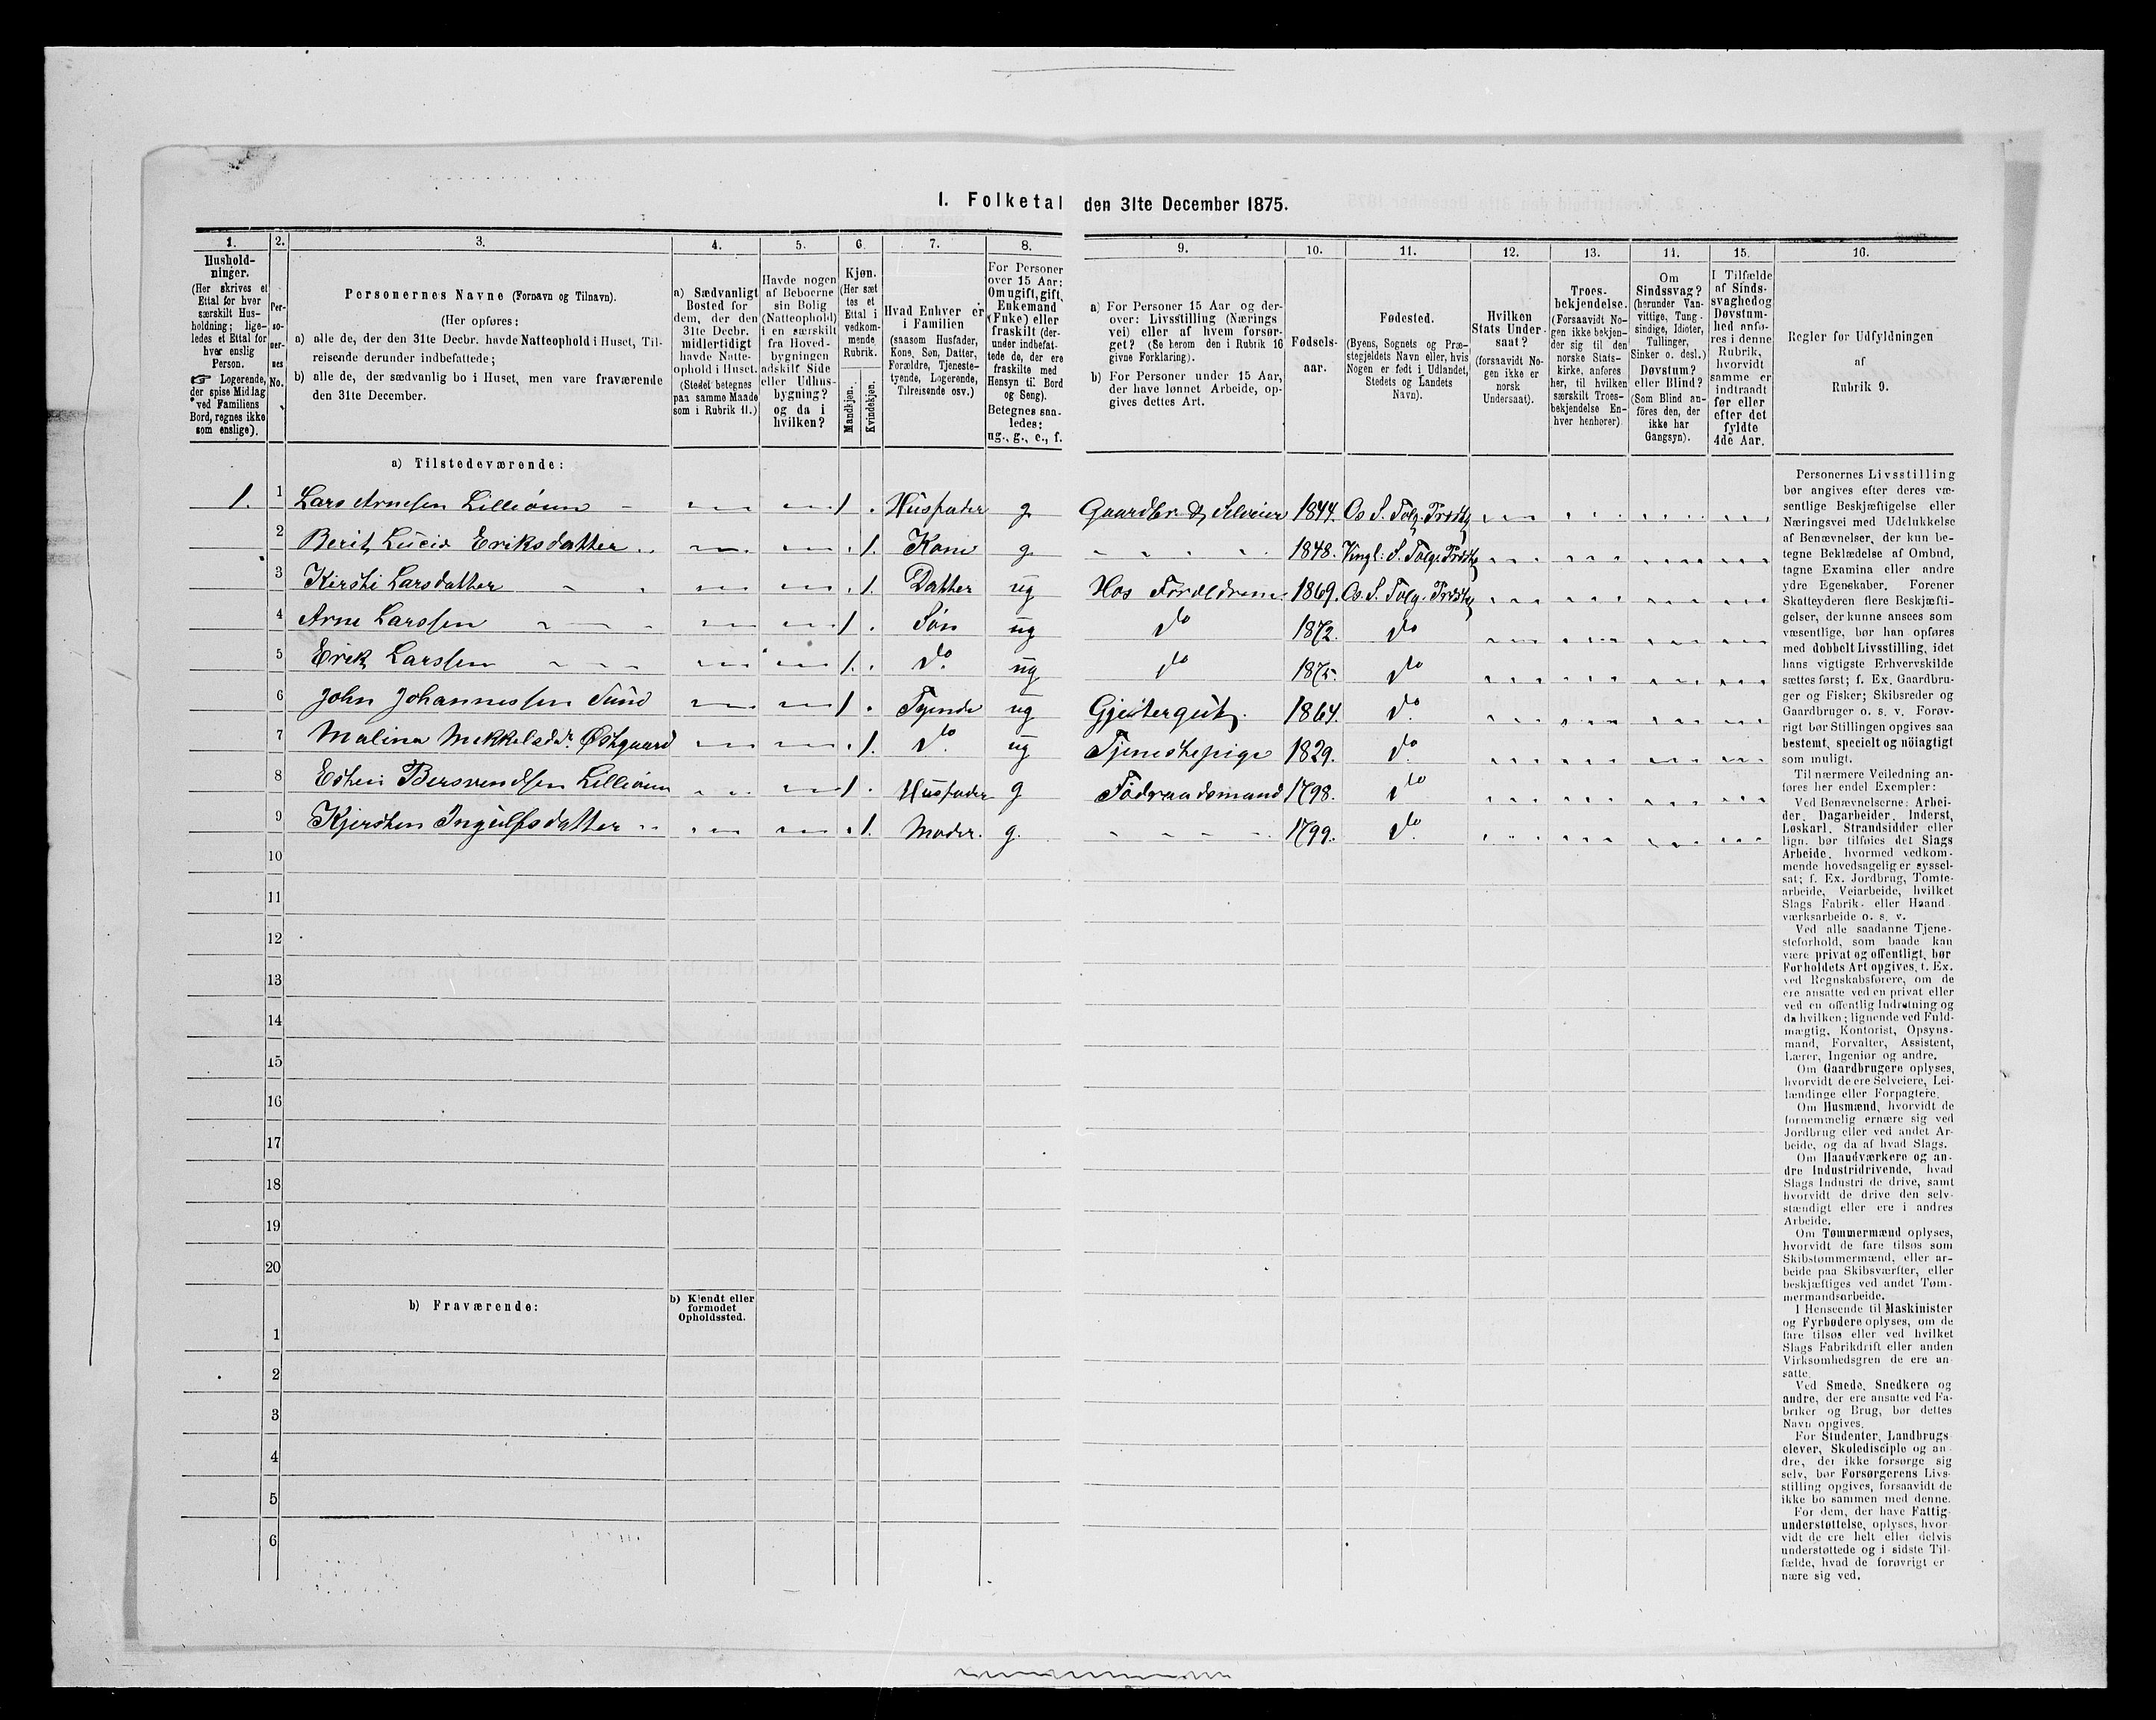 I. Folketal den 31te December 1875.
1. 2. 3. 4. 5. 6. 7. 8. 9. 10. 11. 12. 13. 14. 15. 16.
Hushold-
ninger.
(Her skrives et
Ettal for hver
særskilt Hus-
holdning; lige-
ledes et Ettal for
hver enslig
Person.
☞ Logerende,
der spise Middag
ved Familiens
Bord, regnes ikke
som enslige).
Per-
so-
ner-
nes
No.
Personernes Navne (Fornavn og Tilnavn).
(Her opføres:
a) alle de, der den 31te Decbr. havde Natteophold i Huset, Til-
reisende derunder indbefattede;
b) alle de, der sædvanlig bo i Huset, men vare fraværende
den 31te December.
a) Sædvanligt
Bosted for
dem, der den
31te Decbr.
midlertidigt
havde Natte-
ophold i Huset.
(Stedet betegnes
paa samme Maade
som i Rubrik 11.)
Havde nogen
af Beboerne
sin Bolig
(Natteophold)
i en særskilt
fra Hoved-
bygningen
adskilt Side
eller Udhus-
bygning?
og da i
hvilken?
Kjøn.
(Her sæt
tes et
Ettal i
vedkom-
mende
Rubrik.
Mandkjøn.
Kvindekjøn.
Hvad Enhver er
i Familien
(saasom Husfader,
Kone, Søn, Datter,
Forældre, Tjeneste-
tyende, Logerende,
Tilreisende osv.)
For Personer
over 15 Aar:
Om ugift, gift,
Enkemand
(Enke) eller
fraskilt (der-
under indbefat-
tede de, der ere
fraskilte med
Hensyn til Bord
og Seng).
Betegnes saa-
ledes:
ug., g., e., f.
a) For Personer 15 Aar og der-
over: Livsstilling (Nærings
vei) eller af hvem forsør-
get? (Se herom den i Rubrik 16
givne Forklaring).
b) For Personer under 15 Aar,
der have lønnet Arbeide, op-
gives dettes Art.
Fødsels-
aar.
Fødested.
(Byens, Sognets og Præ-
stegjeldets Navn eller, hvis
Nogen er født i Udlandet,
Stedets og Landets
Navn).
Hvilken
Stats Under-
saat?
(forsaavidt No-
gen ikke er
norsk
Undersaat).
Troes-
bekjendelse.
(Forsaavidt No-
gen ikke bekjen-
der sig til den
norske Stats-
kirke, anføres
her, til hvilken
særskilt Troes-
bekjendelse En-
hver henhører)
Om
Sindssvag?
(herunder Van-
vittige, Tung-
sindige, Idioter,
Tullinger,
Sinker o. desl.)
Døvstum?
eller Blind?
(Som Blind an-
føres den, der
ikke har
Gangsyn).
I Tilfælde
af Sinds-
svaghed og
Døvstum-
hed anfø-
res i denne
Rubrik,
hvorvidt
samme er
indtraadt
før eller
efter det
fyldte
4de Aar.
Regler for Udfyldningen
af
Rubrik 9.
a) Tilstedeværende:
1. 1 Lars Arnesen Lilleöien 1 Husfader g. Gaardbr. & Selveier 1844. Os S. Tolg. Prstg
2 Berit Lucie Eriksdatter 1. Kone g. 1848. Vingl. S. Tolg. Prstg
3 Kirsti Larsdatter 1. Datter ug Hos Forældrene 1869. Os. S. Tolg. Prstg
4 Arne Larssen 1 Søn ug do 1872. do
5 Erik Larssen 1. do. ug do 1875. do
6 John Johannessen Sund 1 Tyende ug Gjætergut. 1864. do.
7 Malina Mekkelsdtr. Østgaard 1. do. ug Tjenestepige 1829. do.
8 Esten Bersvendsen Lilleöien 1 Husfader g Föderaadsmand 1798. do
9 Kjersten Ingulfsdatter 1. Moder. g. 1799. do.
10
11
12
13
14
15
16
17
18
19
20
b) Fraværende:
b) Kjendt eller
formodet
Opholdssted.
1
2
3
4
5
6
Personernes Livsstilling
bør angives efter deres væ-
sentlige Beskjæftigelse eller
Næringsvei med Udelukkelse
af Benævnelser, der kun be-
tegne Beklædelse af Ombud,
tagne Examina eller andre
ydre Egenskaber. Forener
Skatteyderen flere Beskjæfti-
gelser, der kunne ansees som
væsentlige, bør han opføres
med dobbelt Livsstilling, idet
hans vigtigste Erhvervskilde
sættes først; f. Ex. Gaardbru-
ger og Fisker; Skibsreder og
Gaardbruger o. s. v. Forøv-
rigt bør Stillingen opgives saa
bestemt, specielt og nöiagtigt
som muligt.
Til nærmere Veiledning an-
føres her endel Exempler:
Ved Benævnelserne: Arbei-
der, Dagarbeider, Inderst,
Løskarl, Strandsidder eller
lign. bør tilføies det Slags
Arbeide, hvormed vedkom-
mende hovedsagelig er syssel-
sat; f. Ex. Jordbrug, Tomte-
arbeide, Veiarbeide, hvilket
Slags Fabrik- eller Haand-
værksarbeide o. s. v.
Ved alle saadanne Tjene-
steforhold, som baade kan
være privat og offentligt, bør
Forholdets Art opgives, t. Ex.
ved Regnskabsførere, om de
ere ansatte ved en privat eller
ved en offentlig Indretning og
da hvilken; lignende ved Fuld-
mægtig, Kontorist, Opsyns-
mand, Forvalter, Assistent,
Lærer, Ingeniør og andre.
Om Gaardbrugere oplyses,
hvorvidt de ere Selveiere, Lei-
lændinge eller Forpagtere.
Om Husmænd, hvorvidt de
fornemmelig ernære sig ved
Jordbrug eller ved andet Ar-
beide, og da af hvad Slags.
Om Haandværkere og an-
dre Industridrivende, hvad
Slags Industri de drive, samt
hvorvidt de drive den selv-
stændigt eller ere i andres
Arbeide.
Om Tømmermænd oplyses,
hvorvidt de fare tilsøs som
Skibstømmermænd, eller ar-
beide paa Skibsværfter, eller
beskjæftiges ved andet Tøm-
mermandsarbeide.
I Henseende til Maskinister
og Fyrbødere oplyses, om de
fare tilsøs eller ved hvilket
Slags Fabrikdrift eller anden
Virksomhedsgren de ere an-
satte.
Ved Smede, Snedkere og
andre, der ere ansatte ved Fa-
briker og Brug, bør dettes
Navn opgives.
For Studenter, Landbrugs-
elever, Skoledisciple og an-
dre, der ikke forsørge sig
selv, bør Forsørgerens Livs-
stilling opgives, forsaavidt de
ikke bo sammen med denne.
For dem, der have Fattig-
understøttelse, oplyses, hvor-
vidt de ere helt eller delvis
understøttede og i sidste Til-
fælde, hvad de forøvrigt er
nære sig ved.